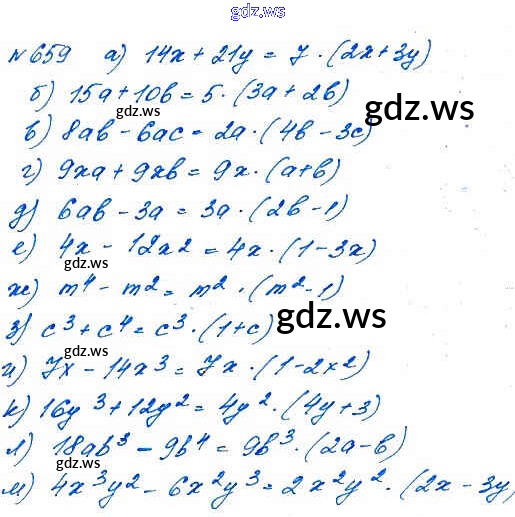 gdz.ws
№659 а) 14x + 21y = 7 · (2x + 3y)
б) 15a + 10b = 5 · (3a + 2b)
gdz.ws
gdz.ws
в) 8ab - 6ac = 2a · (4b - 3c)
г) 9xa + 9xb = 9x · (a + b)
д) 6ab - 3a = 3a · (2b - 1)
е) 4x - 12x2 = 4x · (1 - 3x)
gdz.ws
ж) m⁴ - m² = m² · (m² - 1)
з) c³ + c⁴ = c³ · (1 + c)
gdz.ws
gdz.ws
и) 7x - 14x³ = 7x · (1 - 2x²)
к) 16y³ + 12y² = 4y² · (4y + 3)
л) 18ab³ - 9b⁴ = 9b³ · (2a - b)
gdz.ws
gdz.ws
м) 4x³y² - 6x²y³ = 2x²y² · (2x - 3y)